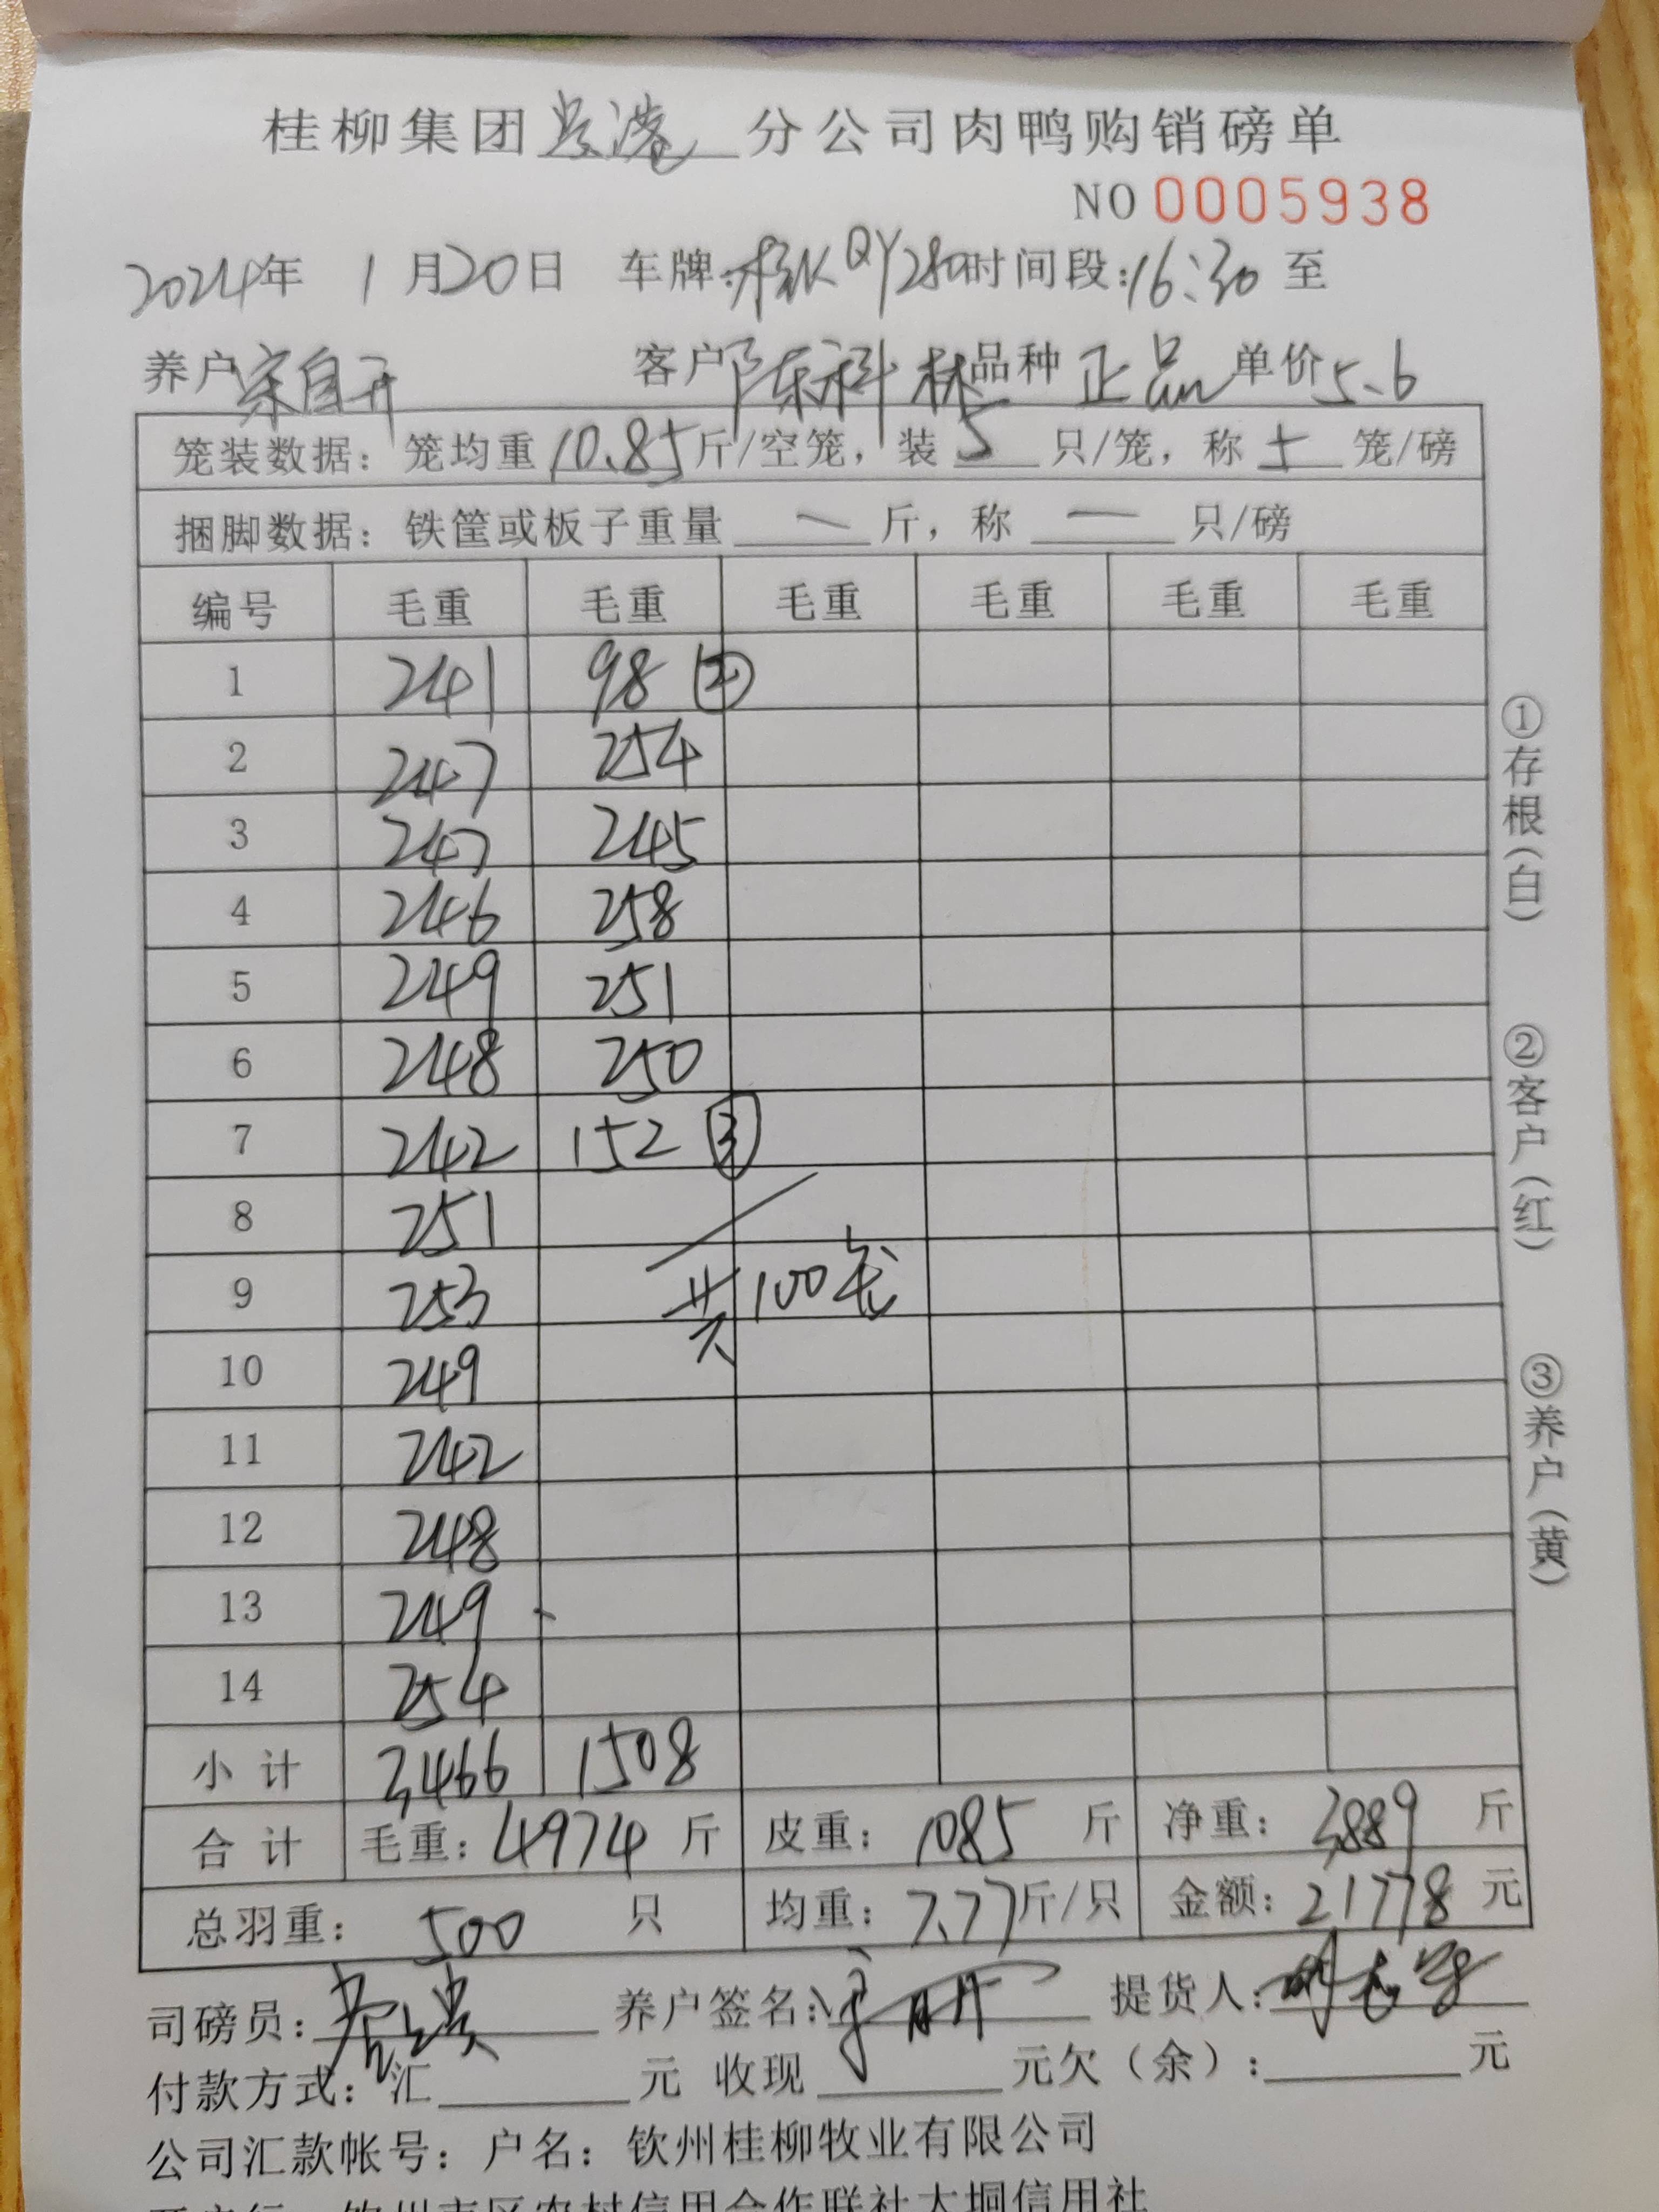 桂柳集团 分公司肉鸭购销磅单
NO 0005938
2024年 1月20日 车牌: QY280 时间段:16:30 至
养户宋自开 客户陈科林 品种 正品 单价5.6
笼装数据：笼均重10.85斤/空笼，装 5 只/笼，称 5 笼/磅
捆脚数据：铁筐或板子重量 — 斤，称 — 只/磅
编号 毛重 毛重 毛重 毛重 毛重 毛重
1 241 98 ②
2 247 254
3 247 245
4 246 258
5 249 251
6 248 250
7 242 152 ③
8 251
9 253 共100笼
10 249
11 242
12 248
13 249
14 254
小 计 3466 1508
合 计 毛重：4974 斤 皮重：1085 斤 净重：3889 斤
总羽重：500 只 均重：7.77斤/只 金额：21778 元
司磅员： 养户签名： 提货人：
付款方式：汇 元 收现 元欠（余）： 元
公司汇款帐号：户名：钦州桂柳牧业有限公司
①存根(白)
②客户(红)
③养户(黄)